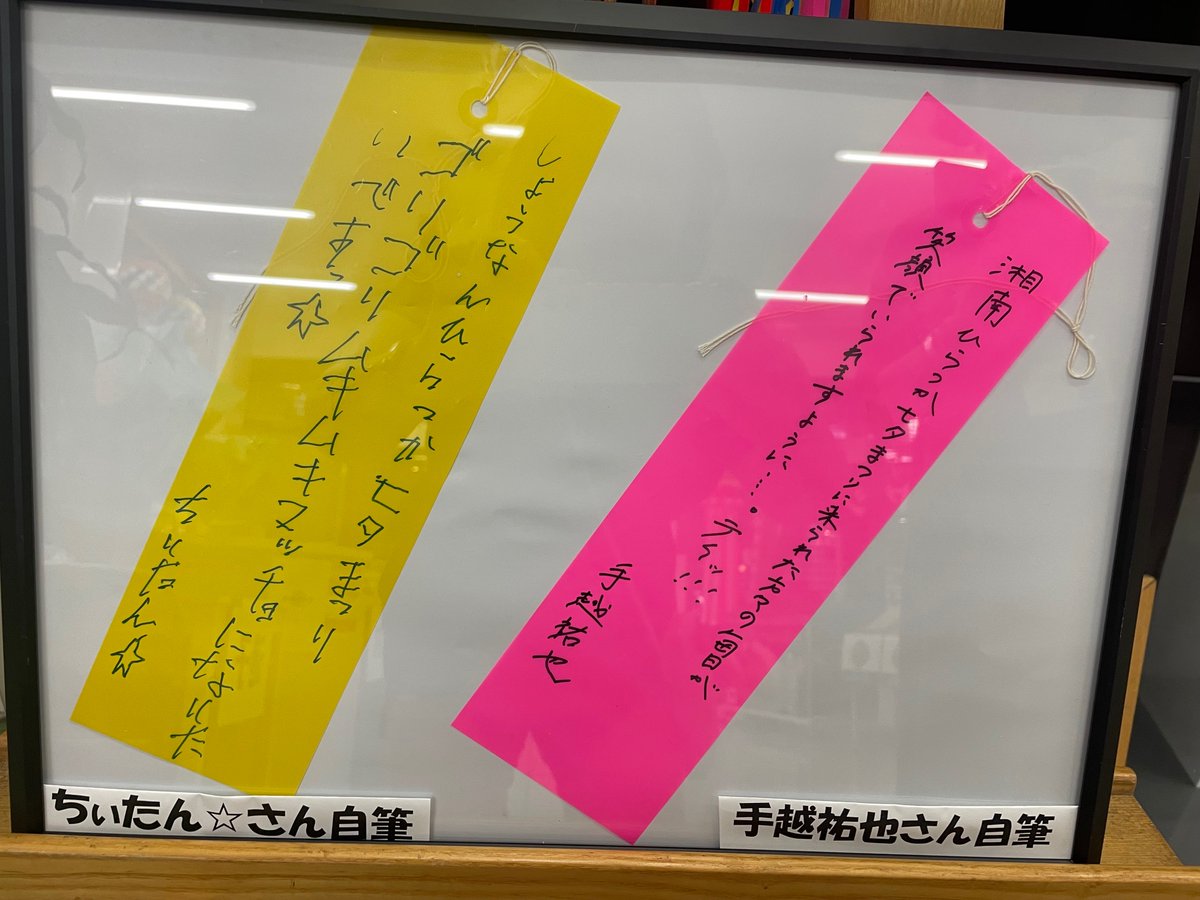 湘南ひらつか七夕まつりに来られた方々の皆が
笑顔でいられますように…。
テイッ!!!
手越祐也
しょうなんひらつか七夕まつり
でごりごりムキムキマッチョになりた
いですっ☆
ちぃたん☆
ちぃたん☆さん自筆
手越祐也さん自筆